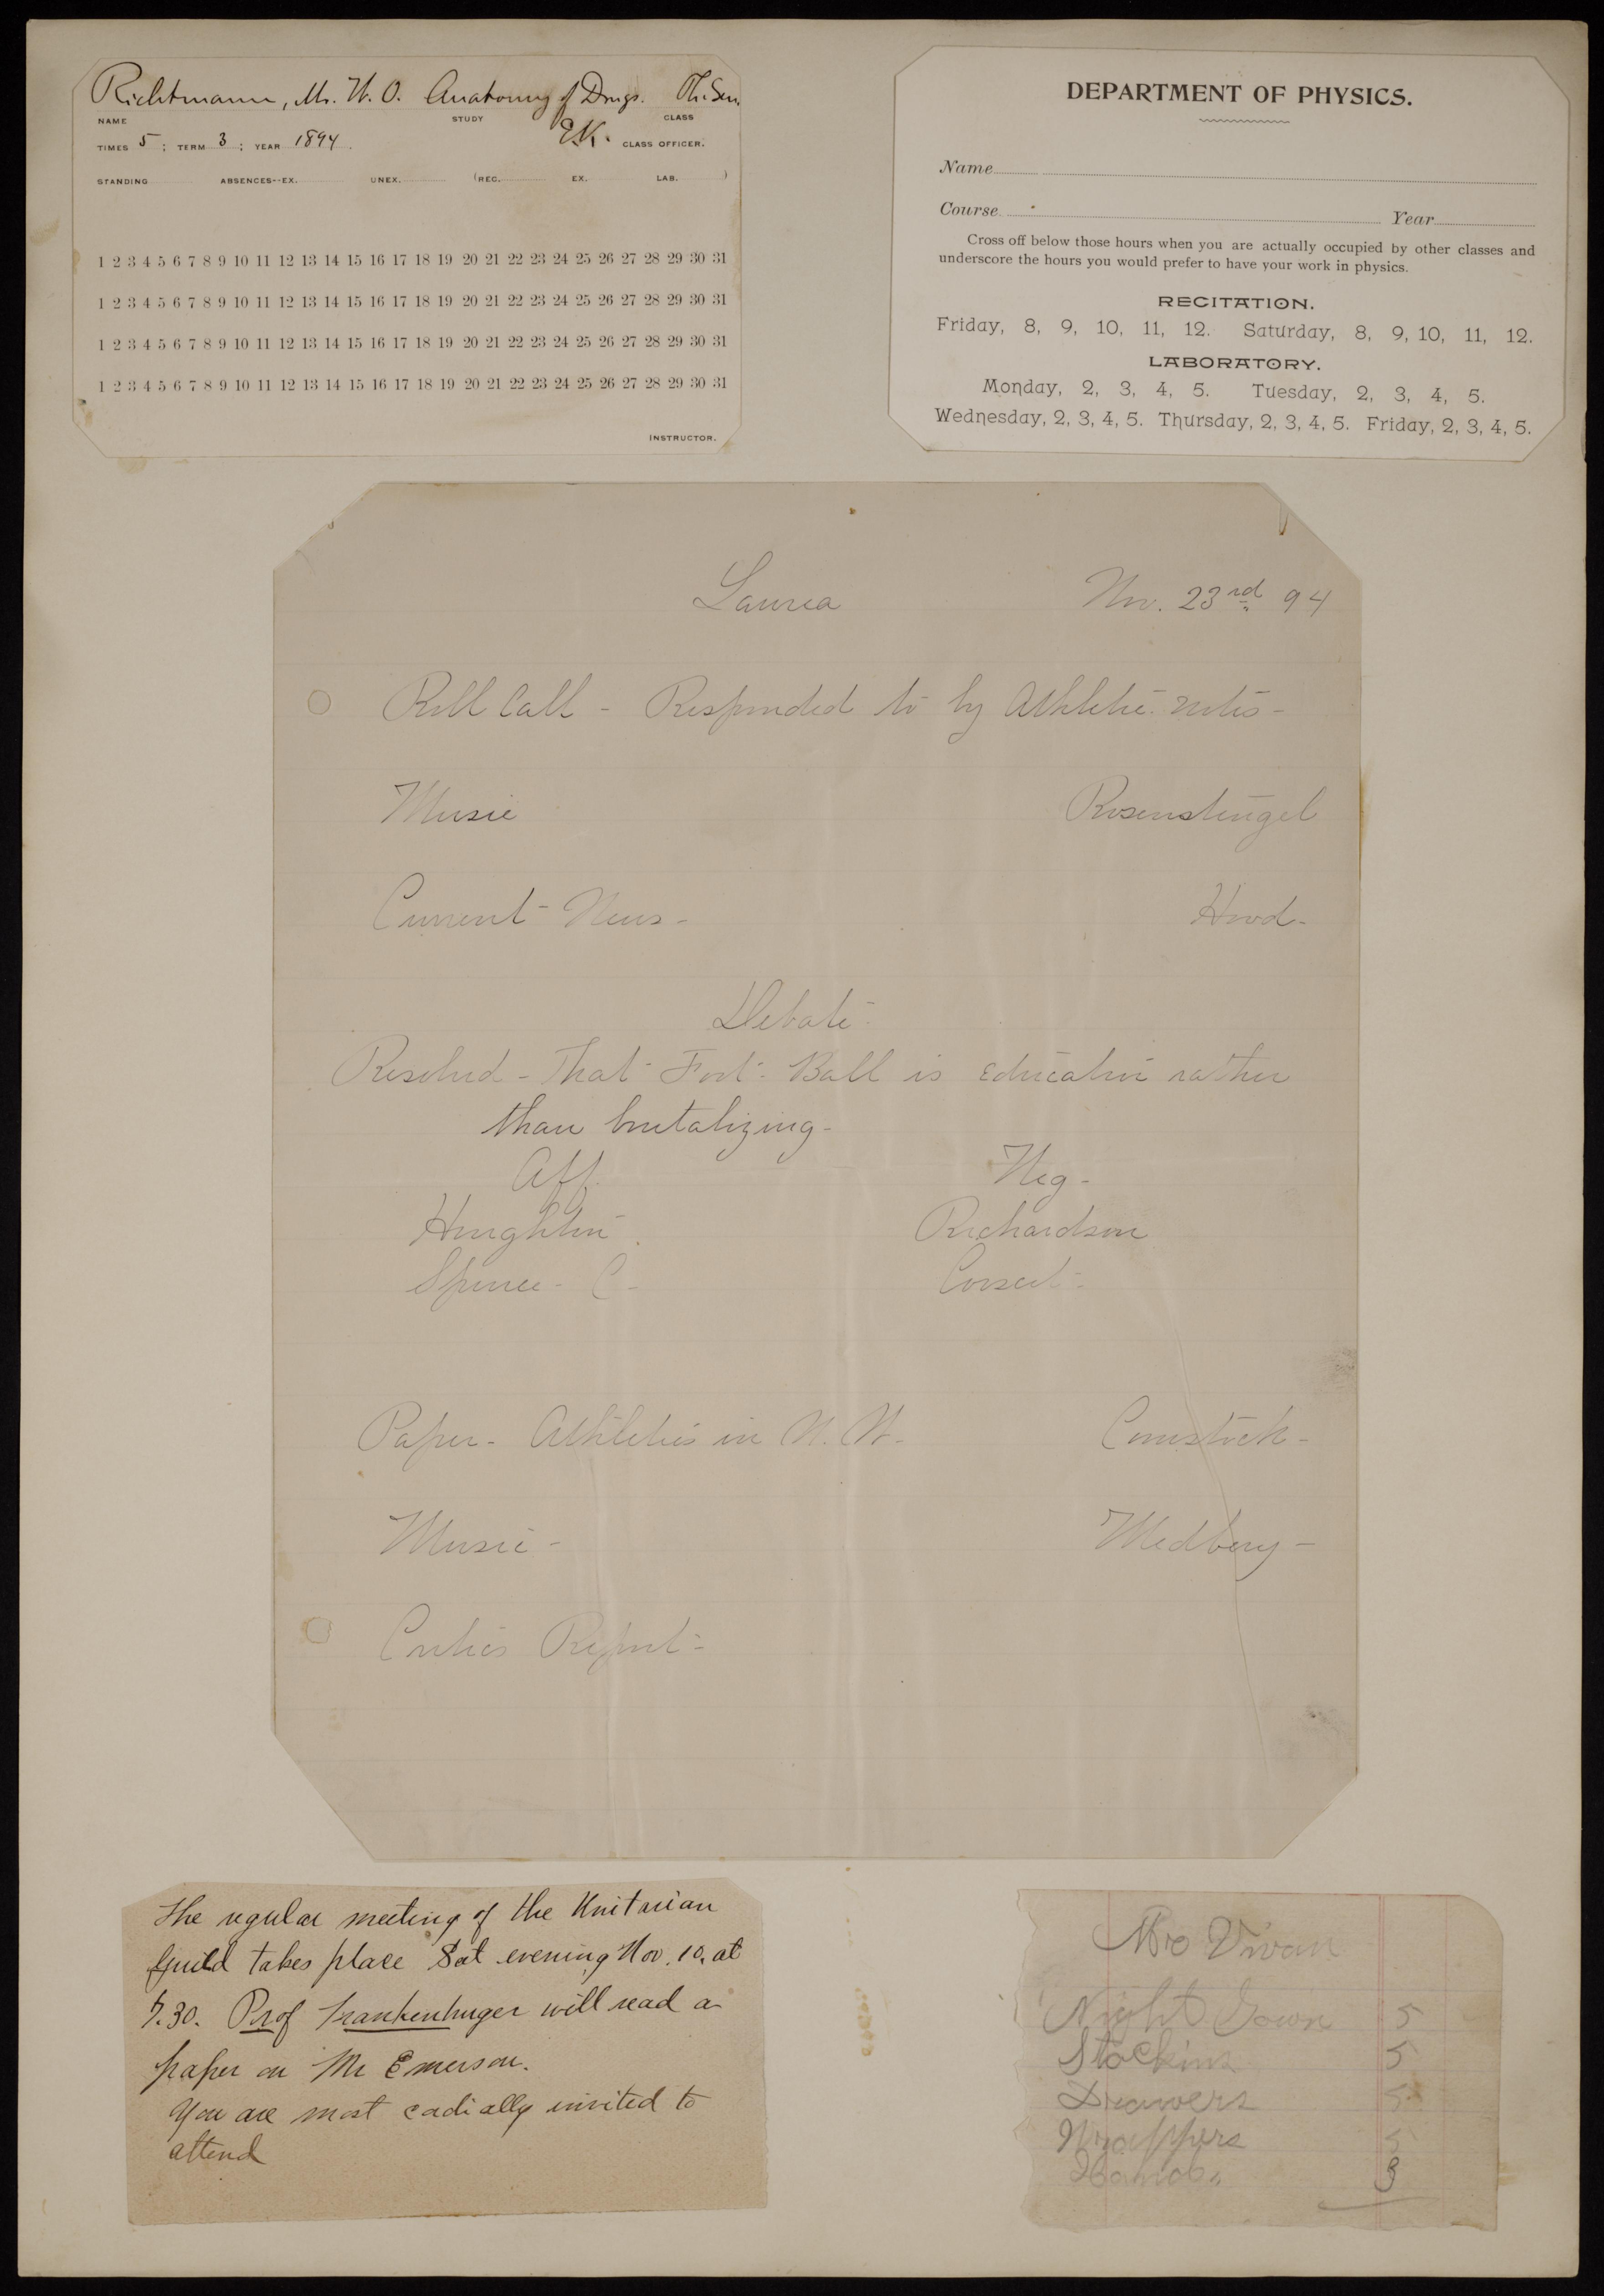 Richtmann, Mr. W. O. Anatomy of Drugs. Ph. Sen.
NAME STUDY CLASS
TIMES 5 ; TERM 3 ; YEAR 1894. E.K. CLASS OFFICER.
STANDING ABSENCES--EX. UNEX. (REC. EX. LAB. )
1 2 3 4 5 6 7 8 9 10 11 12 13 14 15 16 17 18 19 20 21 22 23 24 25 26 27 28 29 30 31
1 2 3 4 5 6 7 8 9 10 11 12 13 14 15 16 17 18 19 20 21 22 23 24 25 26 27 28 29 30 31
1 2 3 4 5 6 7 8 9 10 11 12 13 14 15 16 17 18 19 20 21 22 23 24 25 26 27 28 29 30 31
1 2 3 4 5 6 7 8 9 10 11 12 13 14 15 16 17 18 19 20 21 22 23 24 25 26 27 28 29 30 31
INSTRUCTOR.
DEPARTMENT OF PHYSICS.
Name
Course Year
Cross off below those hours when you are actually occupied by other classes and
underscore the hours you would prefer to have your work in physics.
RECITATION.
Friday, 8, 9, 10, 11, 12. Saturday, 8, 9, 10, 11, 12.
LABORATORY.
Monday, 2, 3, 4, 5. Tuesday, 2, 3, 4, 5.
Wednesday, 2, 3, 4, 5. Thursday, 2, 3, 4, 5. Friday, 2, 3, 4, 5.
Laurea Nov. 23rd 94
Roll Call - Responded to by Athletic notes -
Music Rosenstengel
Current News - Hood -
Debate
Resolved - That Foot Ball is educative rather
than brutalizing -
Aff. Neg -
Houghton Richardson
Spence - C -
Paper - Athletics in U. W. - Comstock -
Music - Medbery -
Critics Report -
The regular meeting of the Unitarian
Guild takes place Sat evening Nov. 10, at
7.30. Prof Frankenburger will read a
paper on Mr Emerson.
You are most cadially invited to
attend
Mrs Vivan
Night Gown 5
Stockins 5
Drawers 5
Wrappers 5
3